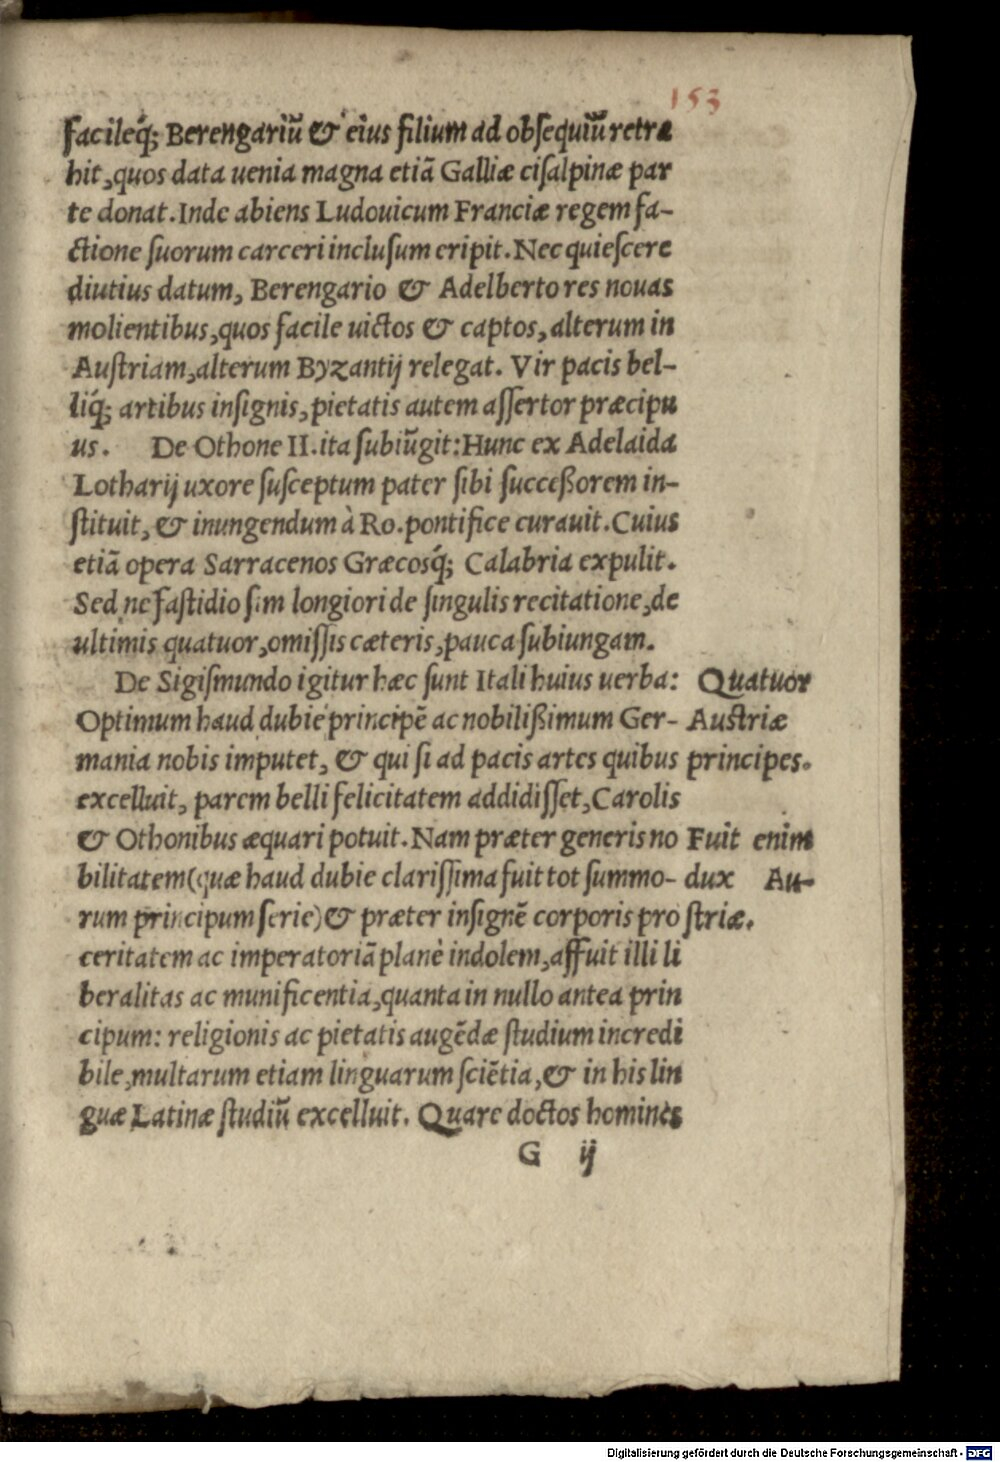 153
facileq́; Berengariũ & eius filium ad obſequiũ retra
hit, quos data uenia magna etiã Galliæ ciſalpinæ par
te donat. Inde abiens Ludouicum Franciæ regem fa-
ctione ſuorum carceri incluſum eripit. Nec quieſcere
diutius datum, Berengario & Adelberto res nouas
molientibus, quos facile uictos & captos, alterum in
Auſtriam, alterum Byzantij relegat. Vir pacis bel-
liq́; artibus inſignis, pietatis autem aſſertor præcipu
us. De Othone II. ita ſubiũgit: Hunc ex Adelaida
Lotharij uxore ſuſceptum pater ſibi ſucceßorem in-
ſtituit, & inungendum à Ro. pontifice curauit. Cuius
etiã opera Sarracenos Græcosq́; Calabria expulit.
Sed ne faſtidio ſim longiori de ſingulis recitatione, de
ultimis quatuor, omiſſis cæteris, pauca ſubiungam.
De Sigiſmundo igitur hæc ſunt Itali huius uerba:
Optimum haud dubie principẽ ac nobilißimum Ger-
mania nobis imputet, & qui ſi ad pacis artes quibus
excelluit, parem belli felicitatem addidiſſet, Carolis
& Othonibus æquari potuit. Nam præter generis no
bilitatem (quæ haud dubie clariſſima fuit tot ſummo-
rum principum ſerie) & præter inſignẽ corporis pro
ceritatem ac imperatoriã planè indolem, affuit illi li
beralitas ac munificentia, quanta in nullo antea prin
cipum: religionis ac pietatis augẽdæ ſtudium incredi
bile, multarum etiam linguarum ſciẽtia, & in his lin
guæ Latinæ ſtudiũ excelluit. Quare doctos homines
G ij
Quatuor
Auſtriæ
principes.
Fuit enim
dux Au-
ſtriæ.
Digitalisierung gefördert durch die Deutsche Forschungsgemeinschaft - DFG